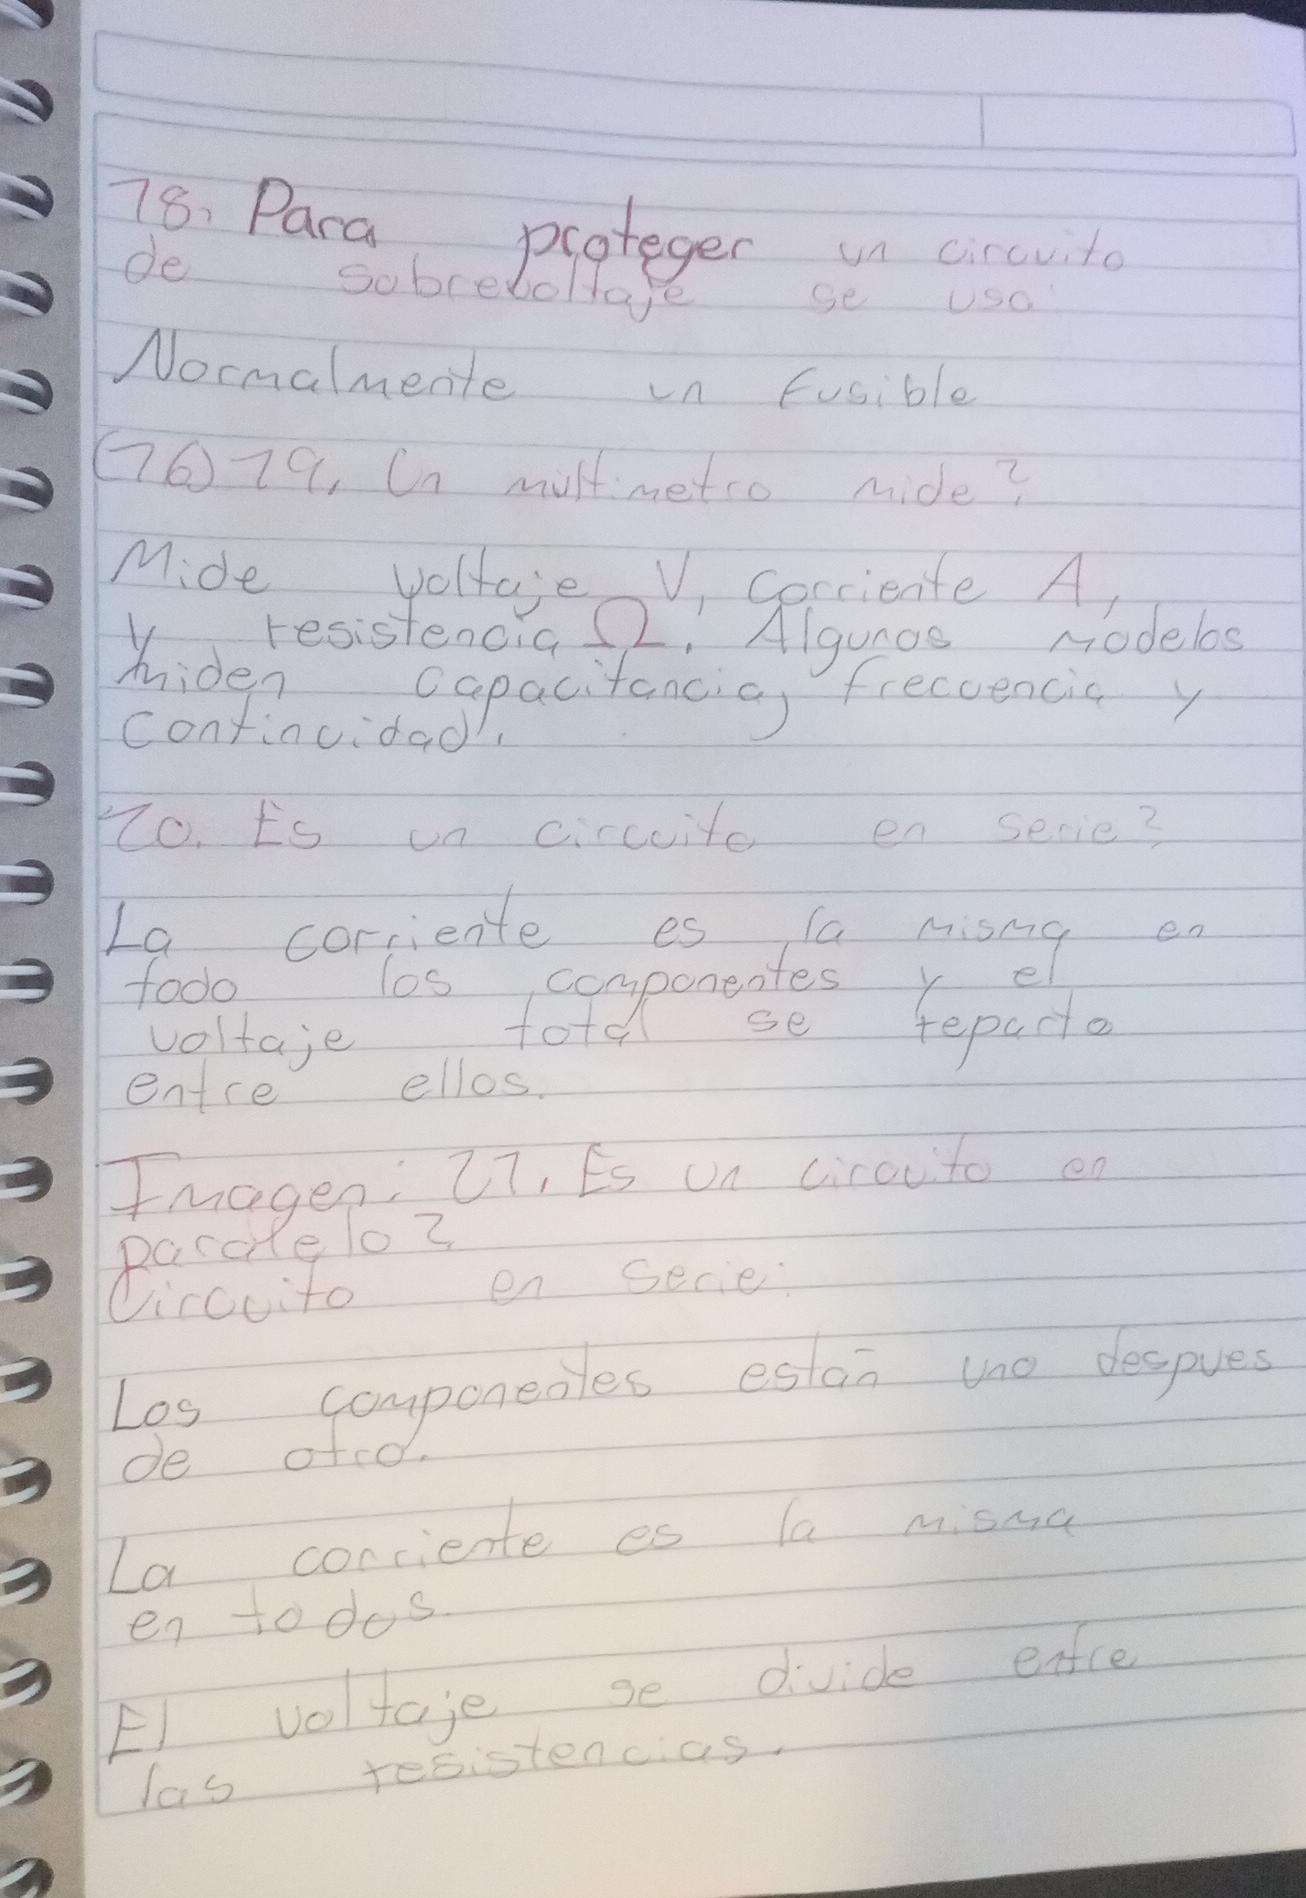 18. Para proteger un circuito
de sobrevoltaje se usa:
Normalmente un fusible
(16) 19. Un multimetro mide?
Mide voltaje V, corriente A,
y resistencia Ω. Algunos modelos
miden capacitancia, frecuencia y
continuidad.
20. Es un circuito en serie?
La corriente es la misma en
todo los componentes y el
voltaje total se reparte
entre ellos.
Imagen: 21. Es un circuito en
paralelo?
Circuito en serie:
Los componentes están uno despues
de otro.
La corriente es la misma
en todos.
El voltaje se divide entre
las resistencias.